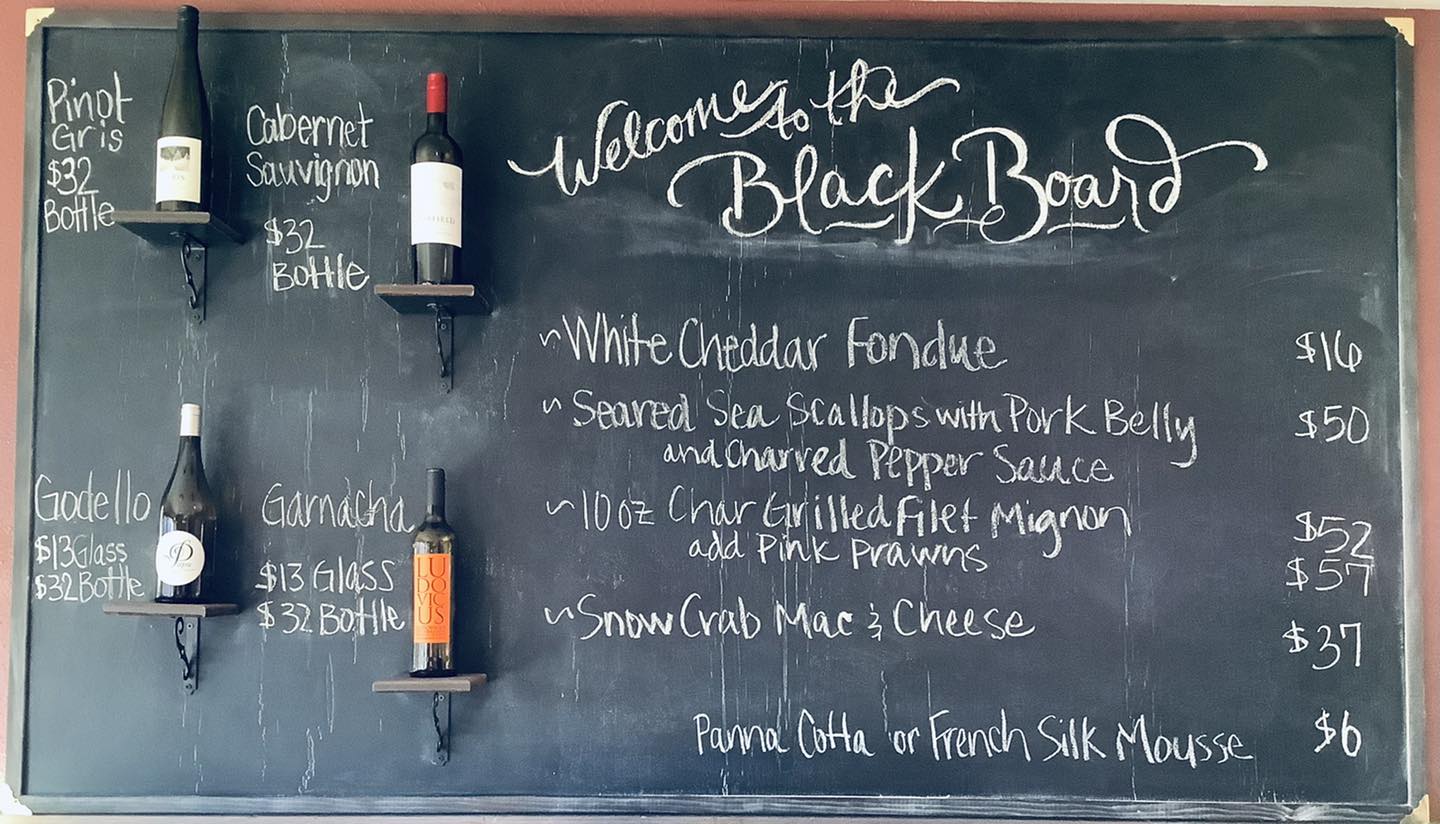 Pinot
Gris
$32
Bottle
Cabernet
Sauvignon
$32
Bottle
Godello
$13 Glass
$32 Bottle
Garnacha
$13 Glass
$32 Bottle
LU
DO
VIC
US
Welcome to the
Black Board
~White Cheddar Fondue $16
~ Seared Sea Scallops with Pork Belly $50
and Charred Pepper Sauce
~10oz Char Grilled Filet Mignon $52
add Pink Prawns $57
~Snow Crab Mac & Cheese $37
Panna Cotta or French Silk Mousse $6